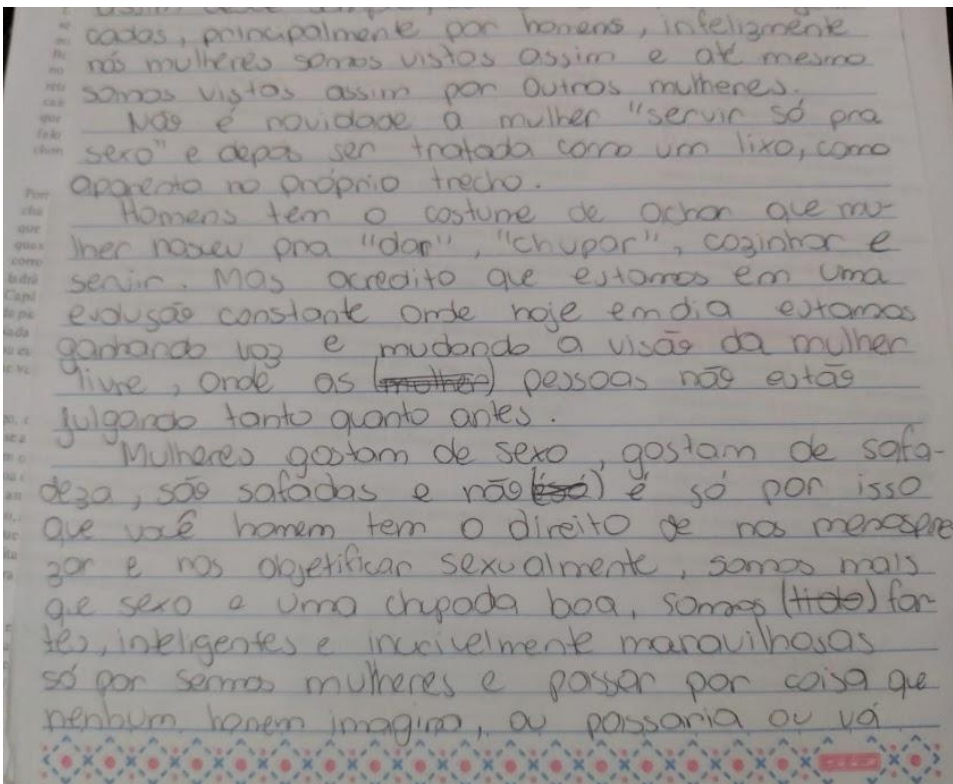 cadas, principalmente por homens, infelizmente
nós mulheres somos vistas assim e até mesmo
somos vistas assim por outras mulheres.
Não é novidade a mulher "servir só pra
sexo" e depois ser tratada como um lixo, como
aparenta no próprio trecho.
Homens tem o costume de achar que mu-
lher nasceu pra "dar", "chupar", cozinhar e
servir. Mas acredito que estamos em uma
evolusão constante onde hoje em dia estamos
ganhando voz e mudando a visão da mulher
livre, onde as (mulher) pessoas não estão
julgando tanto quanto antes.
Mulheres gostam de sexo, gostam de safa-
deza, são safadas e não é só por isso
que você homem tem o direito de nos menospre
zar e nos objetificar sexualmente, somos mais
que sexo e uma chupada boa, somos for
tes, inteligentes e incrivelmente maravilhosas
só por sermos mulheres e passar por coisa que
nenhum homem imagina, ou passaria ou vá